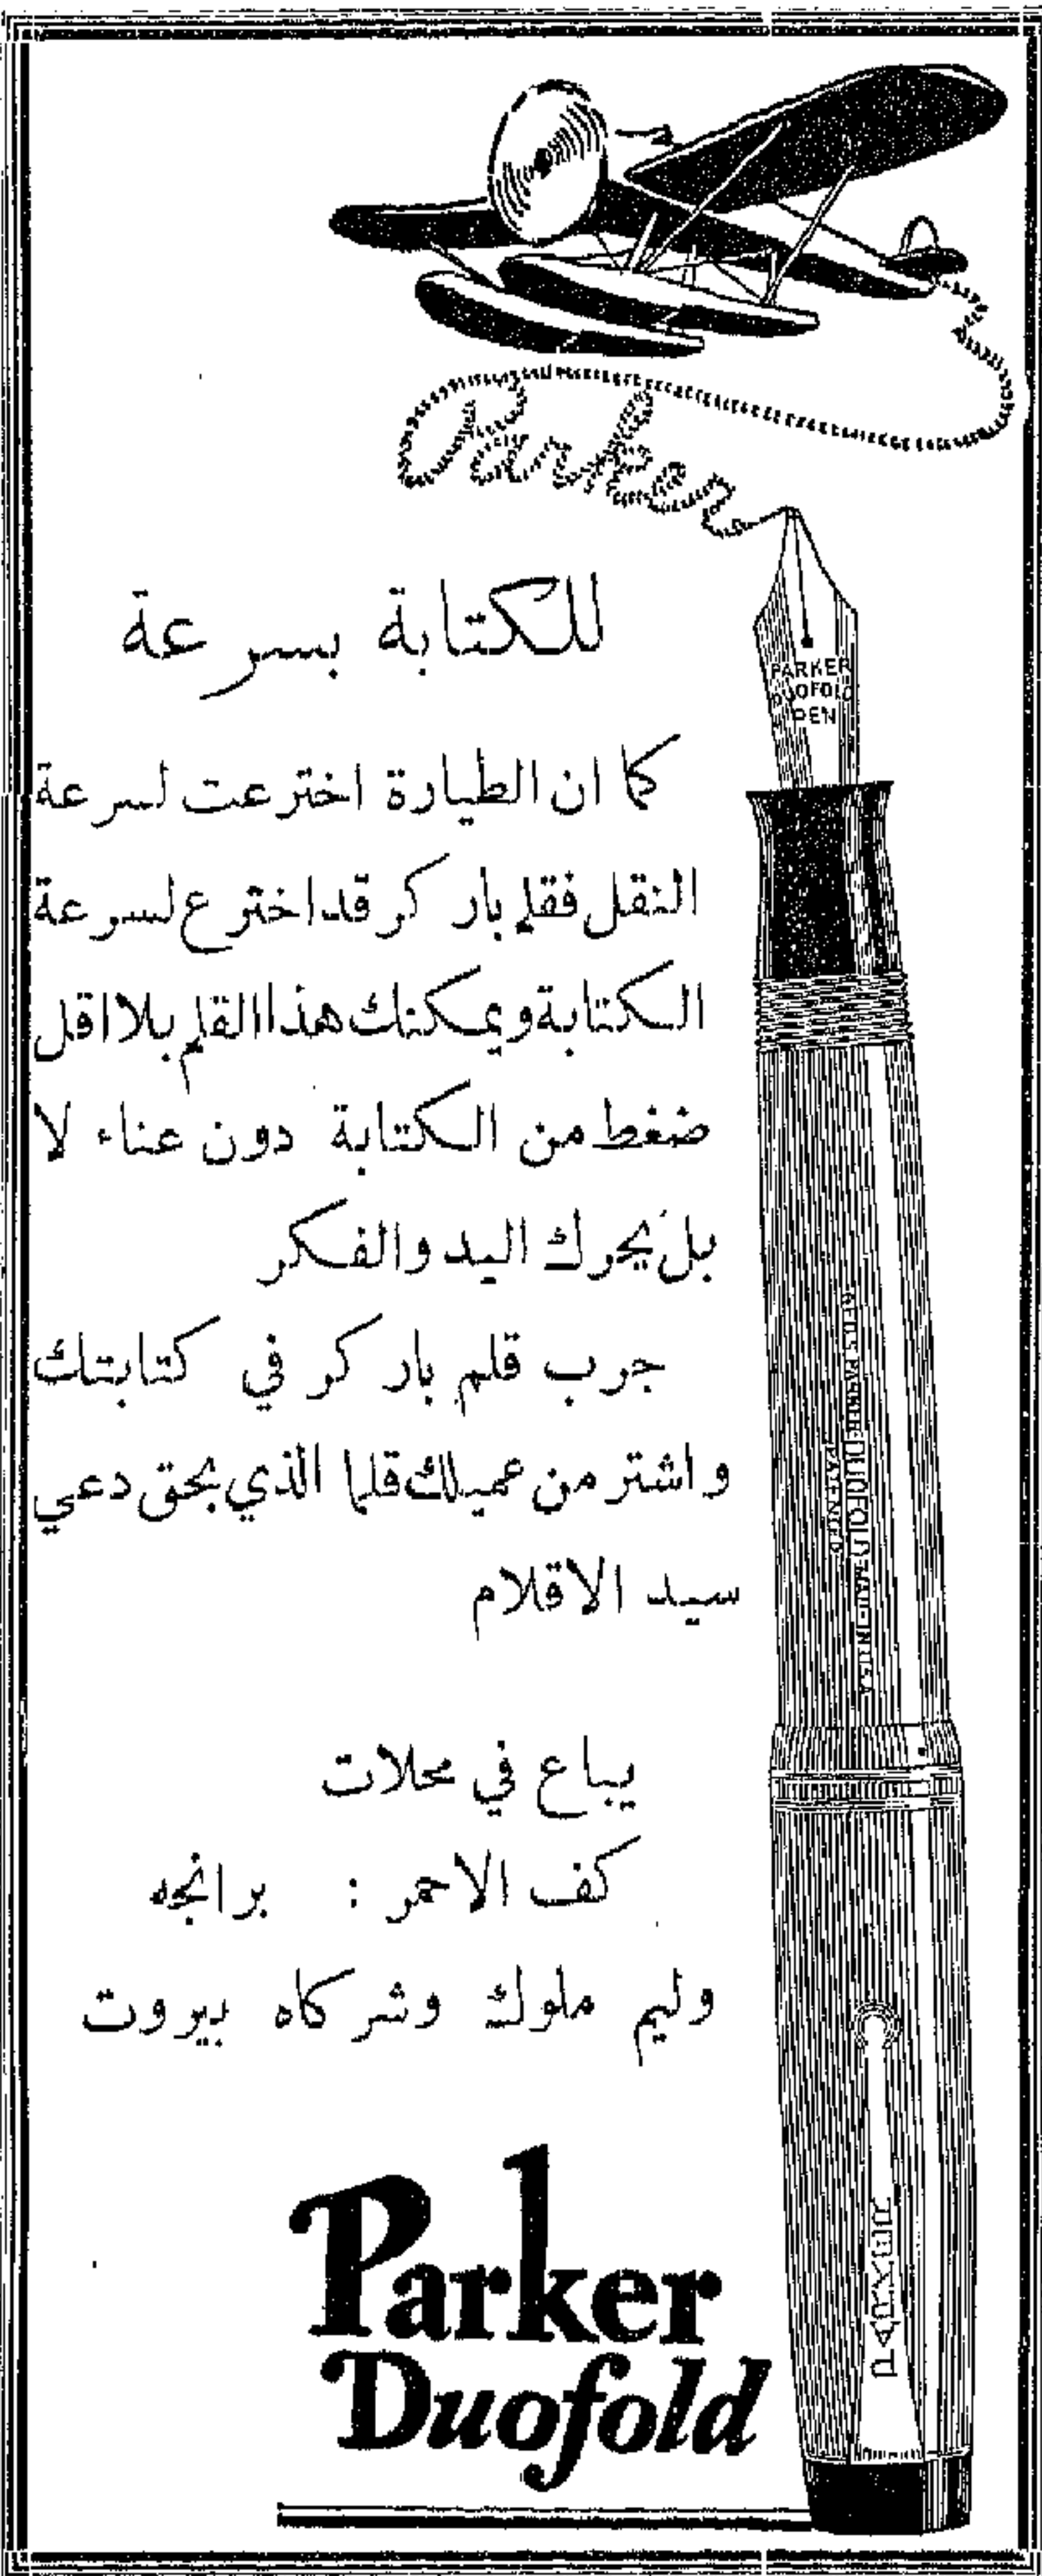 Parker
PARKER
DUOFOLD
PEN
للكتابة بسرعة
كما ان الطيارة اخترعت لسرعة
النقل فقلم باركر قد اخترع لسرعة
الكتابة ويمكنك هذا القلم بلا اقل
ضغط من الكتابة دون عناء لا
بل يحرك اليد والفكر
جرب قلم باركر في كتابتك
واشتر من عميلك قلما الذي بحق دعي
سيد الاقلام
يباع في محلات
كف الاحمر : برانجه
وليم ملوك وشركاه بيروت
PARKER DUOFOLD
PATENTED
PARKER
Parker
Duofold